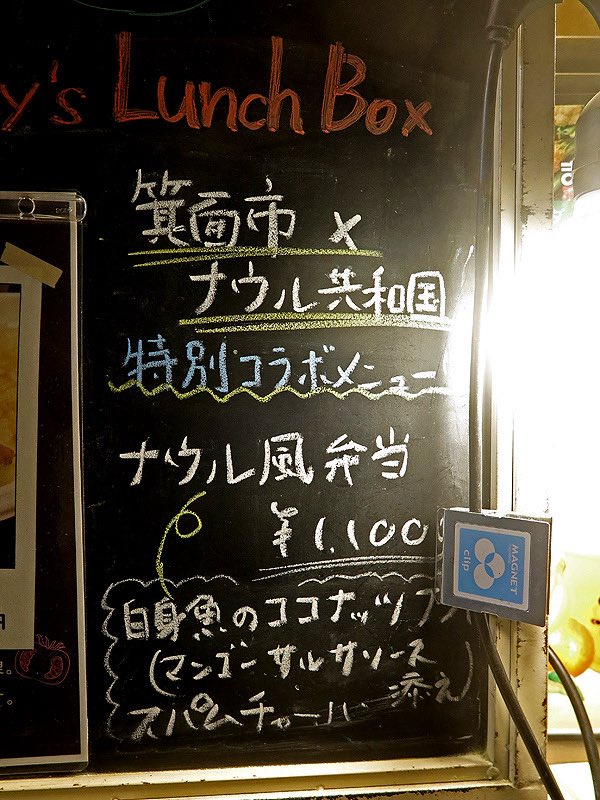 y's Lunch Box
箕面市 ×
ナウル共和国
特別コラボメニュー
ナウル風弁当
¥1,100
白身魚のココナッツフ
(マンゴーサルサソース
添え)
スパムチャーハン
MAGNET
clip